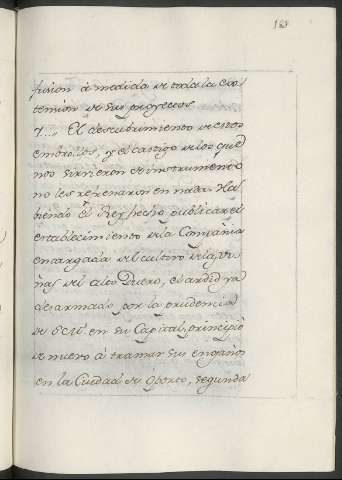 161
fusion à medida de toda la ex-
tension de sus proyectos
7... El descubrimiento de estos
embrollos, y el castigo de los que
nos sirvieron de instrumento
no les refrenaron en nada. Ha-
biendo el Rey hecho publicar el
establecimiento de la Compañia
encargada del cultivo de las vi-
ñas del alto Duero, el ardid ya
desarmado por la prudencia
de S.M. en su Capital, principió
de nuevo à tramar sus engaños
en la Ciudad de Oporto, segunda